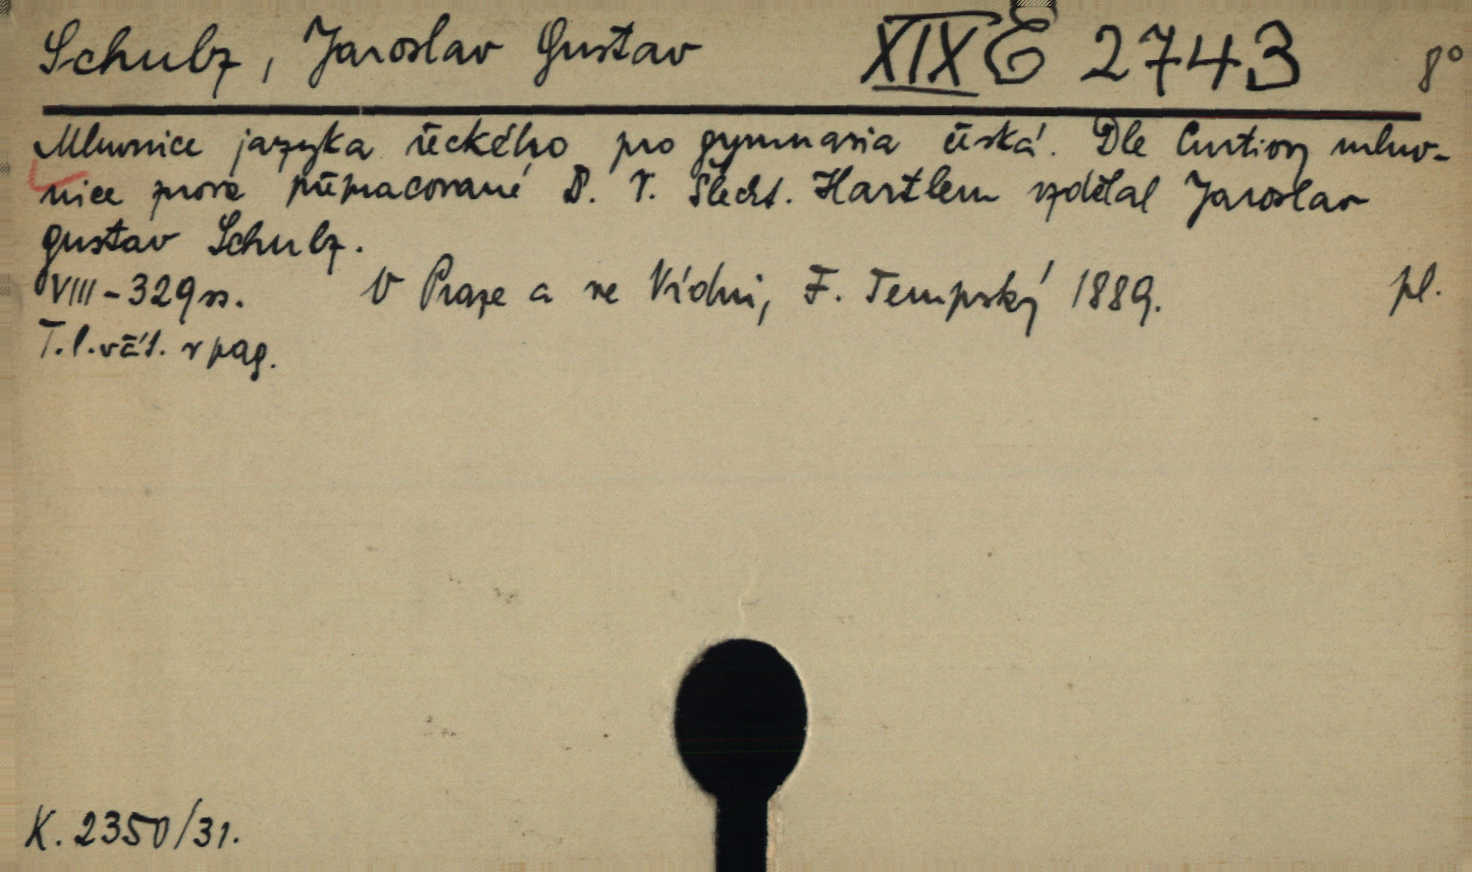 Schulz, Jaroslav Gustav XIX E 2743 8°
Mluvnice jazyka řeckého pro gymnasia česká. Dle Curtiovy mluv-
nice prove přepracované D. V. Šlecht. Hartlem vzdělal Jaroslav
Gustav Schulz.
VIII-329 ss. V Praze a ve Vídni, F. Tempský 1889. pl.
T. l. včít. v pag.
K. 2350/31.